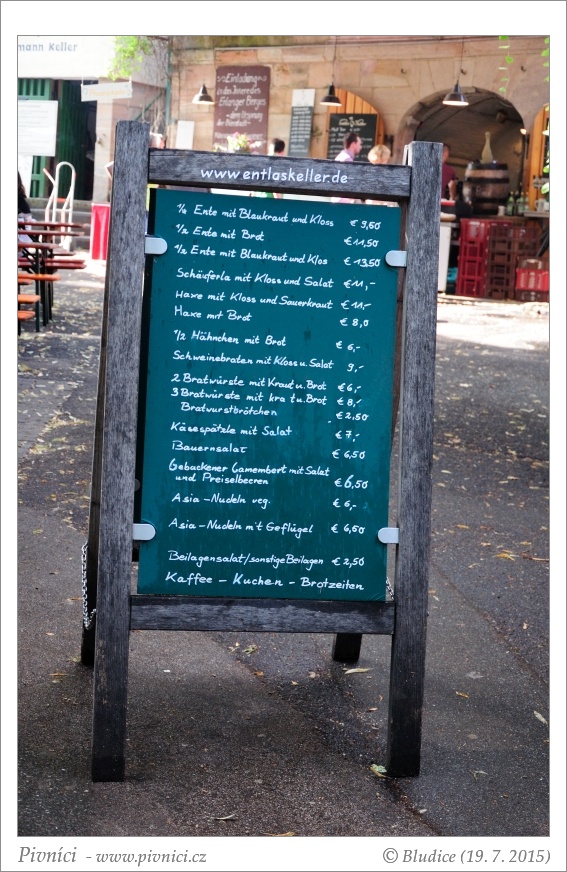 mann Keller
Einladung
in das Innere des
Erlanger Berges
www.entlaskeller.de
1/4 Ente mit Blaukraut und Kloss € 9,60
1/2 Ente mit Brot €11,50
1/2 Ente mit Blaukraut und Klos €13,50
Schäuferla mit Kloss und Salat €11,-
Haxe mit Kloss und Sauerkraut €11,-
Haxe mit Brot € 8,0
1/2 Hähnchen mit Brot € 6,-
Schweinebraten mit Kloss u. Salat 9,-
2 Bratwürste mit Kraut u. Brot €6,-
3 Bratwürste mit kra t u. Brot €8,-
Bratwurstbrötchen €2,50
Käsespätzle mit Salat €7,-
Bauernsalat €6,50
Gebackener Camembert mit Salat
und Preiselbeeren €6,50
Asia-Nudeln veg. €6,-
Asia-Nudeln mit Geflügel €6,50
Beilagensalat/sonstige Beilagen €2,50
Kaffee - Kuchen - Brotzeiten
Pivníci - www.pivnici.cz
© Bludice (19. 7. 2015)